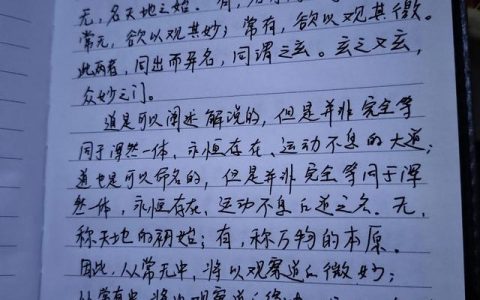 无，名天地之始。有，名
常无，欲以观其妙；常有，欲以观其徼。
此两者，同出而异名，同谓之玄。玄之又玄，
众妙之门。
道是可以阐述解说的，但是并非完全等
同于浑然一体、永恒存在、运动不息的大道；
道也是可以命名的，但是并非完全等同于浑
然一体，永恒存在、运动不息的道之名。无，
称天地的初始；有，称万物的本原。
因此，从常无中，将以观察道的微妙；
从常有中，将以观察道